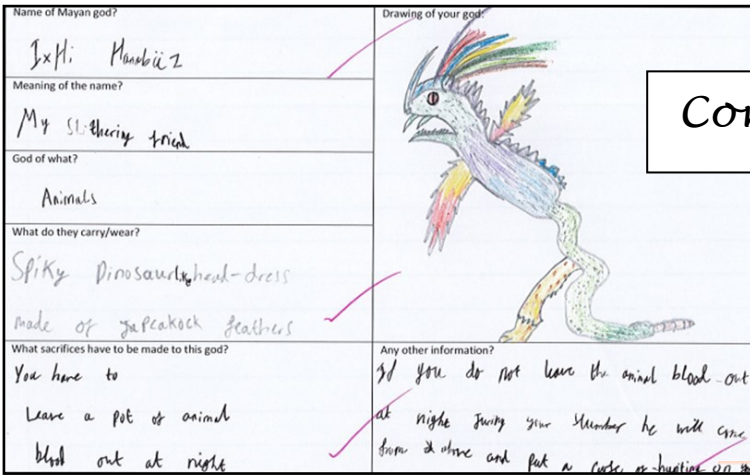 Name of Mayan god?
IxHi
Meaning of the name?
My slithering friend
God of what?
Animals
What do they carry/wear?
Spiky Dinosaur like head-dress
made of feathers
What sacrifices have to be made to this god?
You have to
Leave a pot of animal
blood out at night
Drawing of your god:
Cor
Any other information?
If you do not leave the animal blood out
at night during your slumber he will come
from above and put a curse on